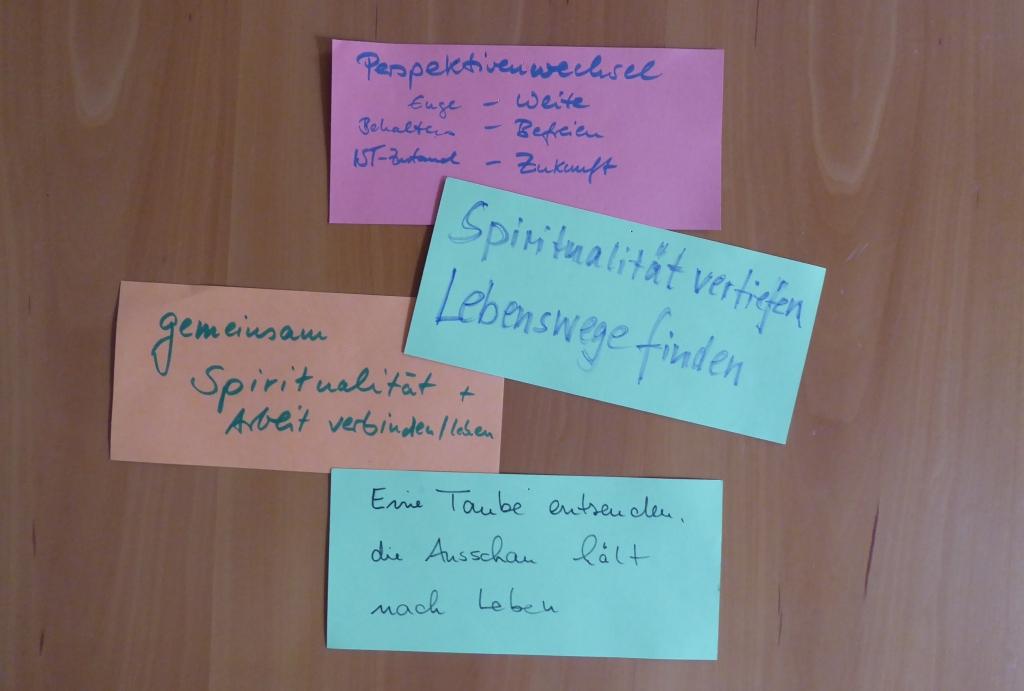 Perspektivenwechsel
Enge – Weite
Behalten – Befreien
IST-Zustand – Zukunft
Spiritualität vertiefen
Lebenswege finden
gemeinsam
Spiritualität +
Arbeit verbinden/leben
Eine Taube entsenden,
die Ausschau hält
nach Leben